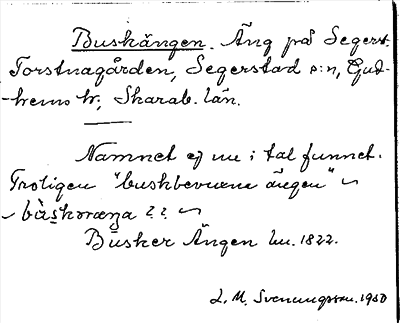 Buskängen. Äng på Segerst.
Torstnagården, Segerstad s:n, Gud-
-hems hr, Skarab. län.
Namnet ej nu i tal funnet.
Troligen "buskbevuxna ängen" ~
~ bùskæŋa ?? ~
Busker Ängen hu. 1822.
L. M. Svenungsson. 1950